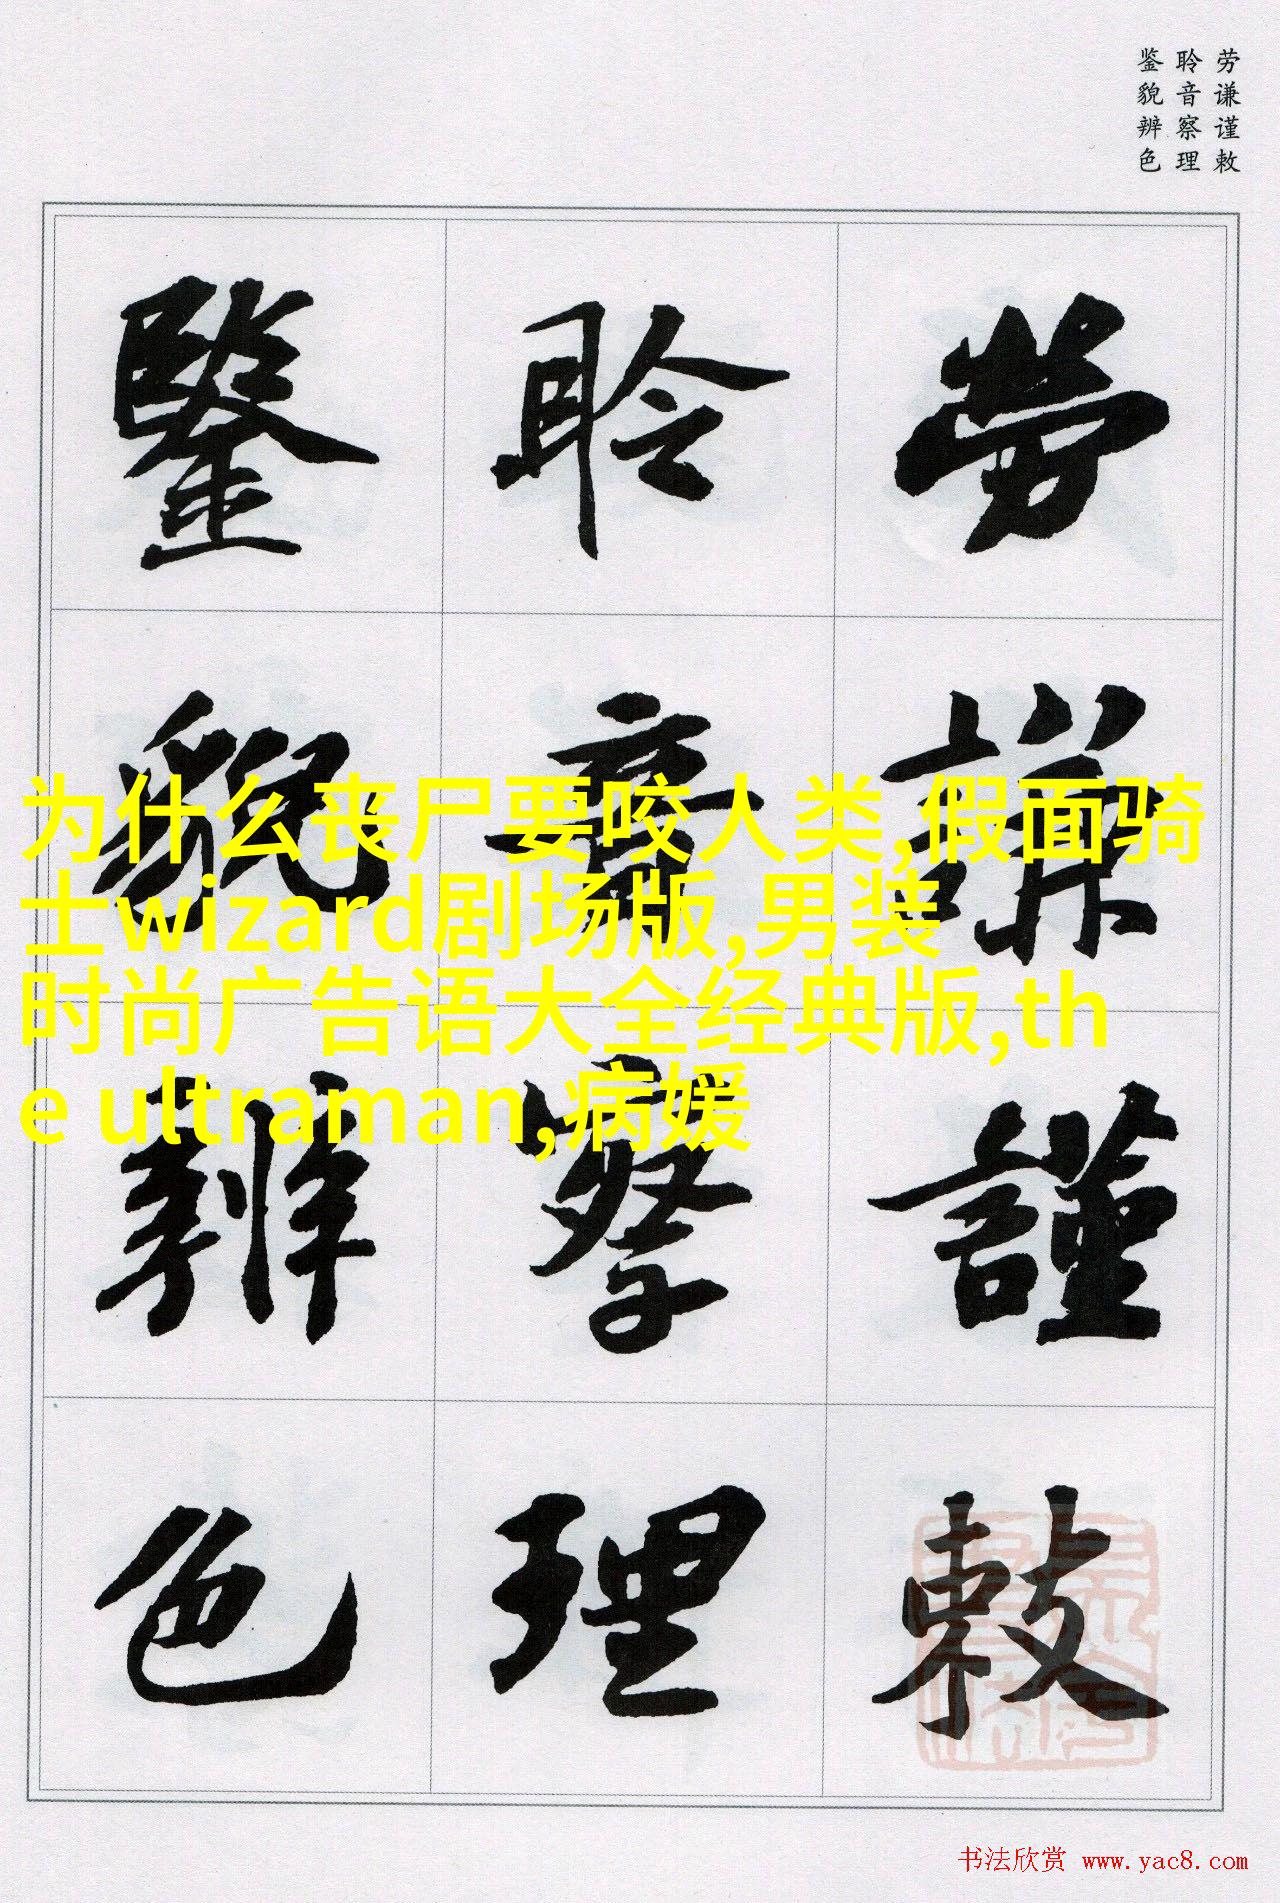 劳谦谨敕
聆音察理
鉴貌辨色
勞謙謹敕
聆音察理
鑒貌辨色
为什么丧尸要咬人类,假面骑
士wizard剧场版,男装
时尚广告语大全经典版,th
e ultraman,病媛
书法欣赏 www.yac8.com